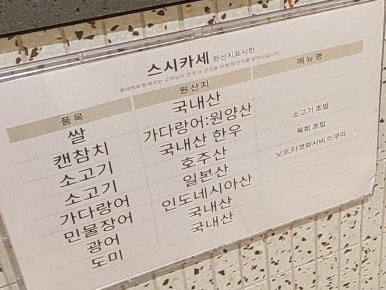 스시카세 원산지표시판
품목 원산지 메뉴명
쌀 국내산
캔참치 가다랑어:원양산
소고기 국내산 한우 소고기 초밥
소고기 호주산 육회 초밥
가다랑어 일본산 낫또,타코와사비,이쿠라
민물장어 인도네시아산
광어 국내산
도미 국내산